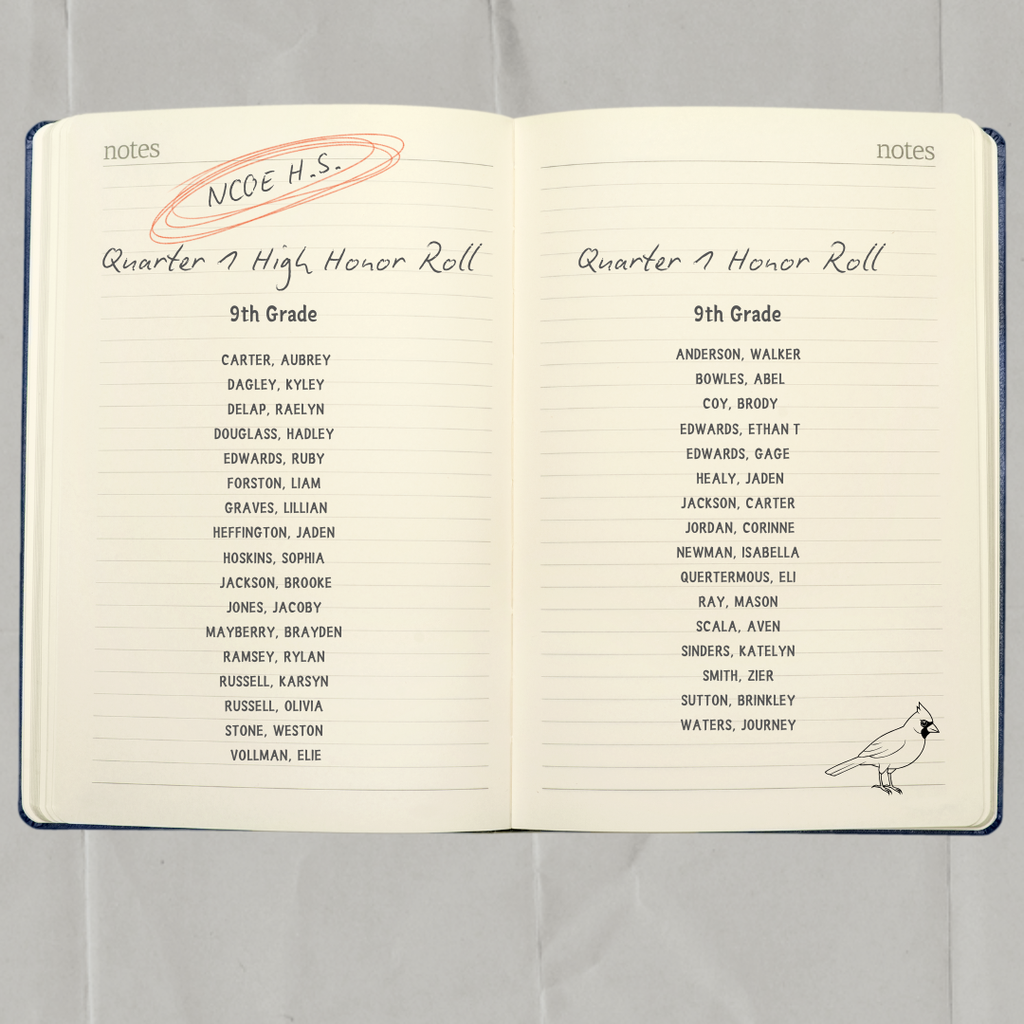 notes
NCOE H.S.
Quarter 1 High Honor Roll
9th Grade
CARTER, AUBREY
DAGLEY, KYLEY
DELAP, RAELYN
DOUGLASS, HADLEY
EDWARDS, RUBY
FORSTON, LIAM
GRAVES, LILLIAN
HEFFINGTON, JADEN
HOSKINS, SOPHIA
JACKSON, BROOKE
JONES, JACOBY
MAYBERRY, BRAYDEN
RAMSEY, RYLAN
RUSSELL, KARSYN
RUSSELL, OLIVIA
STONE, WESTON
VOLLMAN, ELIE
notes
Quarter 1 Honor Roll
9th Grade
ANDERSON, WALKER
BOWLES, ABEL
COY, BRODY
EDWARDS, ETHAN T
EDWARDS, GAGE
HEALY, JADEN
JACKSON, CARTER
JORDAN, CORINNE
NEWMAN, ISABELLA
QUERTERMOUS, ELI
RAY, MASON
SCALA, AVEN
SINDERS, KATELYN
SMITH, ZIER
SUTTON, BRINKLEY
WATERS, JOURNEY